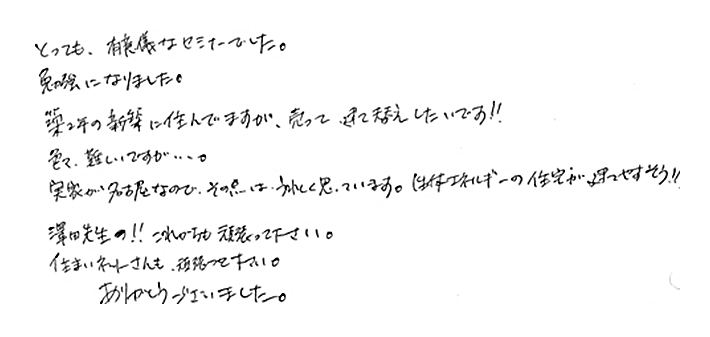 とっても、有意儀なセミナーでした。
勉強になりました。
築2年の新築に住んでますが、売って建て替えしたいです!!
色々、難しいですが・・・。
実家が名古屋なので、その点は、うれしく思っています。(生体エネルギーの住宅が建てやすそう!!
澤田先生の!! これからも頑張って下さい。
住まいネットさんも、頑張って下さい。
ありがとうございました。